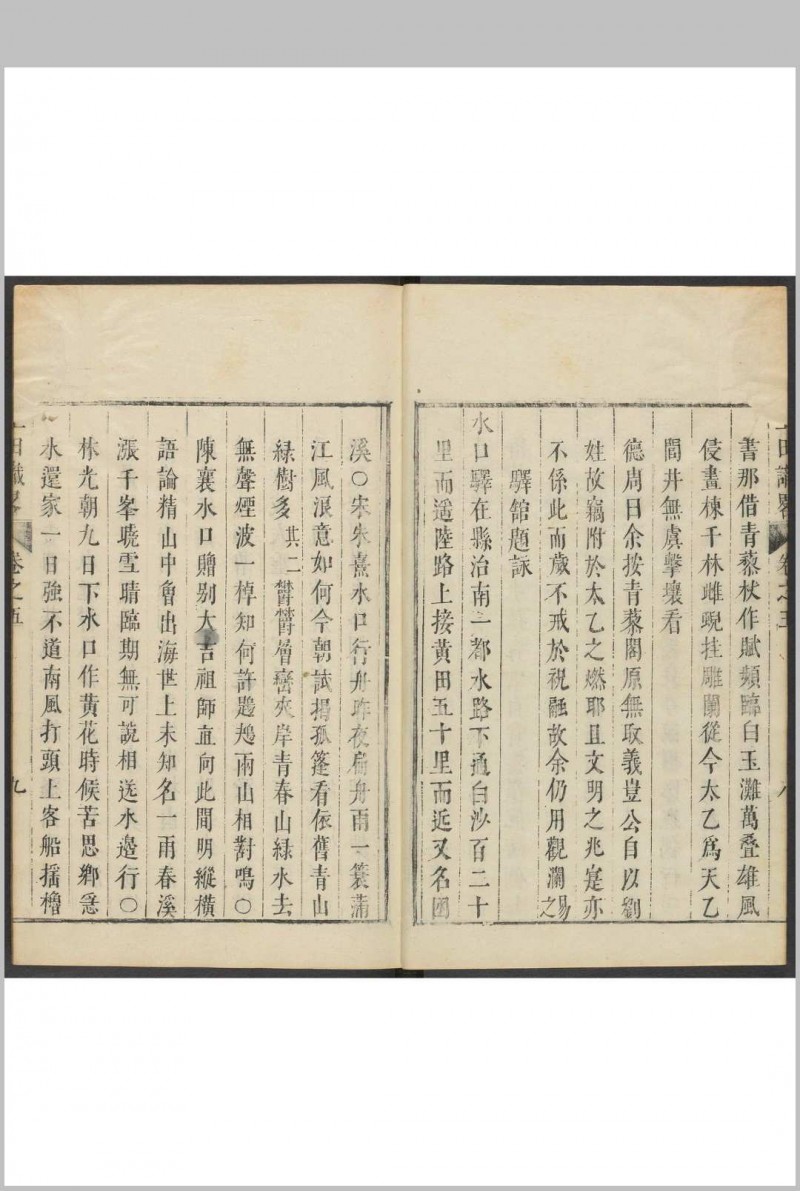 書那借青藜杖作賦頻臨白玉灘萬叠雄風
侵畫棟千林雌霓挂雕闌從今太乙爲天乙
閭井無虞擊壤看
德周曰余按青藜閣原無取義豈公自以劉
姓故竊附於太乙之燃耶且文明之兆寔亦
不係此而歲不戒於祝融故余仍用觀瀾易之
驛舘題詠
水口驛在縣治南二都水路下通白沙百二十
里而遥陸路上接黄田五十里而近又名囦
卷之五
八
溪〇宋朱熹水口行舟昨夜扁舟雨一簑滿
江風浪意如何今朝試揭孤篷看依舊青山
緑樹多 其二 欝欝層巒夾岸青春山緑水去
無聲煙波一棹知何許鶗鴂兩山相對鳴〇
陳襄水口贈别大吉祖師直向此間明縱横
語論精山中曾出海世上未知名一雨春溪
漲千峯曉雪晴臨期無可說相送水邊行〇
林光朝九日下水口作黄花時候苦思鄉急
水還家一日強不道南風打頭上客船摇櫓
田識畧
卷之五
九